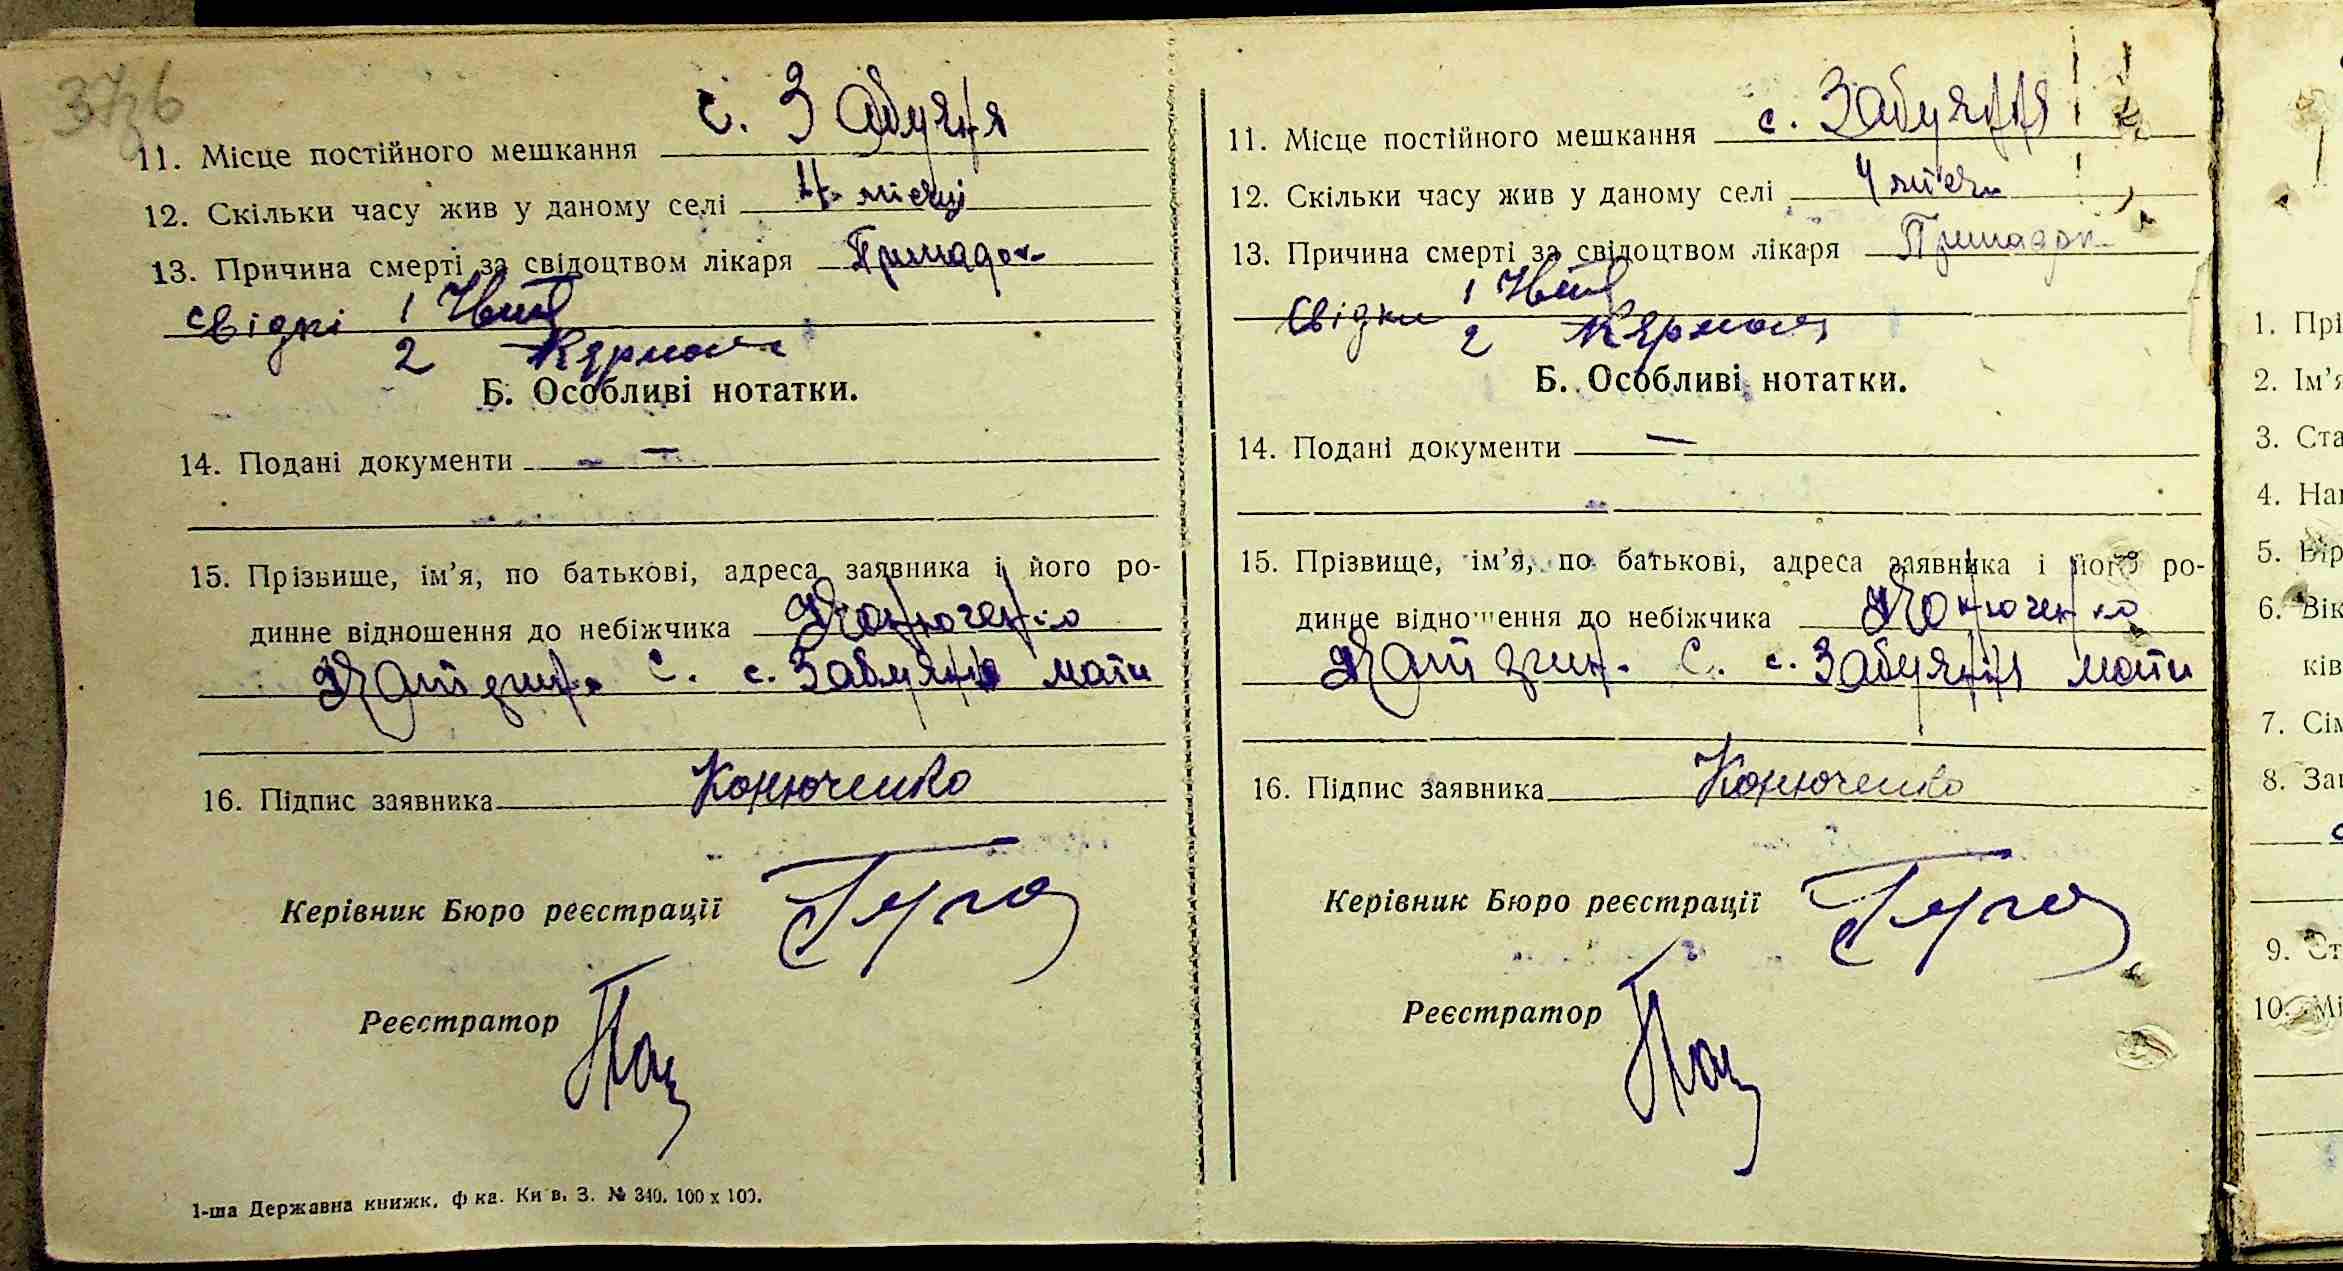 37зб
11. Місце постійного мешкання с. Забуяня
12. Скільки часу жив у даному селі 4 місяці
13. Причина смерті за свідоцтвом лікаря Припадок
свідкі 1
2
Б. Особливі нотатки.
14. Подані документи —
15. Прізвище, ім’я, по батькові, адреса заявника і його ро-
динне відношення до небіжчика Конюченко
С. с. Забуяння мати
16. Підпис заявника Конюченко
Керівник Бюро реєстрації
Реєстратор
1-ша Державна книжк. ф ка. Київ. З. № 340. 100 х 100.
11. Місце постійного мешкання с. Забуяння
12. Скільки часу жив у даному селі 4 місяц
13. Причина смерті за свідоцтвом лікаря Припадок
Свідки 1
2
Б. Особливі нотатки.
14. Подані документи —
15. Прізвище, ім’я, по батькові, адреса заявника і його ро-
динне відношення до небіжчика Конюченко
С. с. Забуяння мати
16. Підпис заявника Конюченко
Керівник Бюро реєстрації
Реєстратор
1. Прі
2. Ім’я
3. Ста
4. Нац
5. Вір
6. Вік
ків
7. Сім
8. Зап
9. Ст
10. Мі